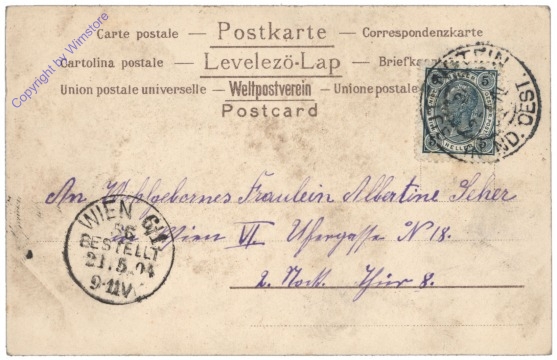 Carte postale — Postkarte — Correspondenzkarte
Cartolina postale — Levelező-Lap — Briefka
Union postale universelle — Weltpostverein — Unione postale
Postcard
Copyright by Wimstore
5 5
HELLER
ND. OEST.
An Wohlgebornes Fraulein Albertine
Wien VI N 18.
2. Stock. Thür 8.
WIEN 6/1
56
BESTELLT
21.5.04
9-11V